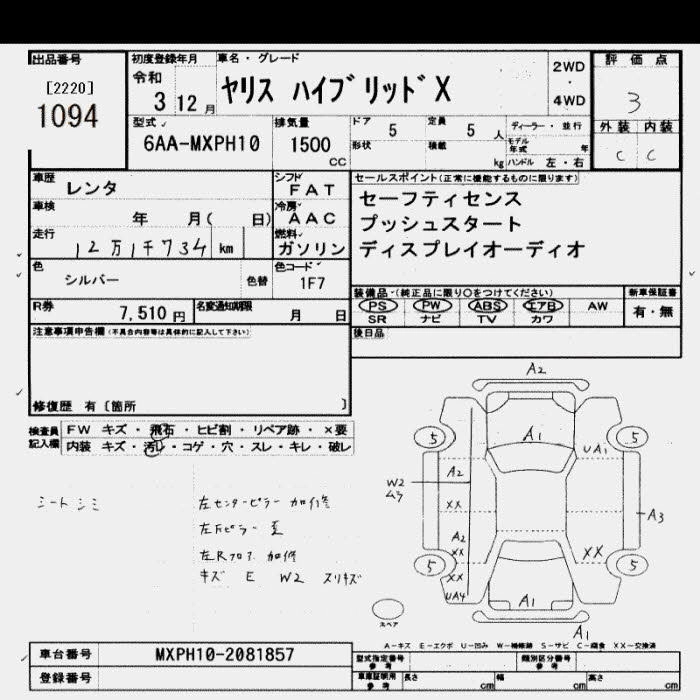 出品番号
[2220]
1094
初度登録年月
令和 3 12 月
車名・グレード
ヤリス ハイブリッド X
2WD
・
4WD
評価点
3
外装 内装
C C
型式
6AA-MXPH10
排気量
1500 CC
ドア 5
定員 5 人
ディーラー・並行
形状
積載 kg
モデル年式 年
ハンドル 左・右
車歴 レンタ
シフト FAT
車検 年 月( 日)
冷房 AAC
走行 12万1千734 km
燃料 ガソリン
セールスポイント(正常に機能するものに限ります)
セーフティセンス
プッシュスタート
ディスプレイオーディオ
色 シルバー 色替
色コード 1F7
装備品 (純正品に限り○をつけてください)
PS PW ABS エアB AW
SR ナビ TV カワ
新車保証書
有・無
R券 7,510 円
名変通知期限 月 日
後日品
注意事項申告欄 (不具合内容等は具体的に記入して下さい)
修復歴 有〔箇所 〕
検査員記入欄
FW キズ・飛石・ヒビ割・リペア跡・×要
内装 キズ・汚レ・コゲ・穴・スレ・キレ・破レ
シート シミ
左センターピラー 加修
左Rフロア 加修
キズ E W2 スリキズ
A2
5
A1
UA1
5
A2
W2
ムラ
XX
A3
A2
XX
XX
XX
5
5
UA4
A1
A1
スペア
A-キズ E-エクボ U-凹み W-補修跡 S-サビ C-腐食 XX-交換済
車台番号 MXPH10-2081857
登録番号
型式指定番号 参考
類別区分番号 参考
車庫証明用 参考
長さ cm
幅 cm
高さ cm